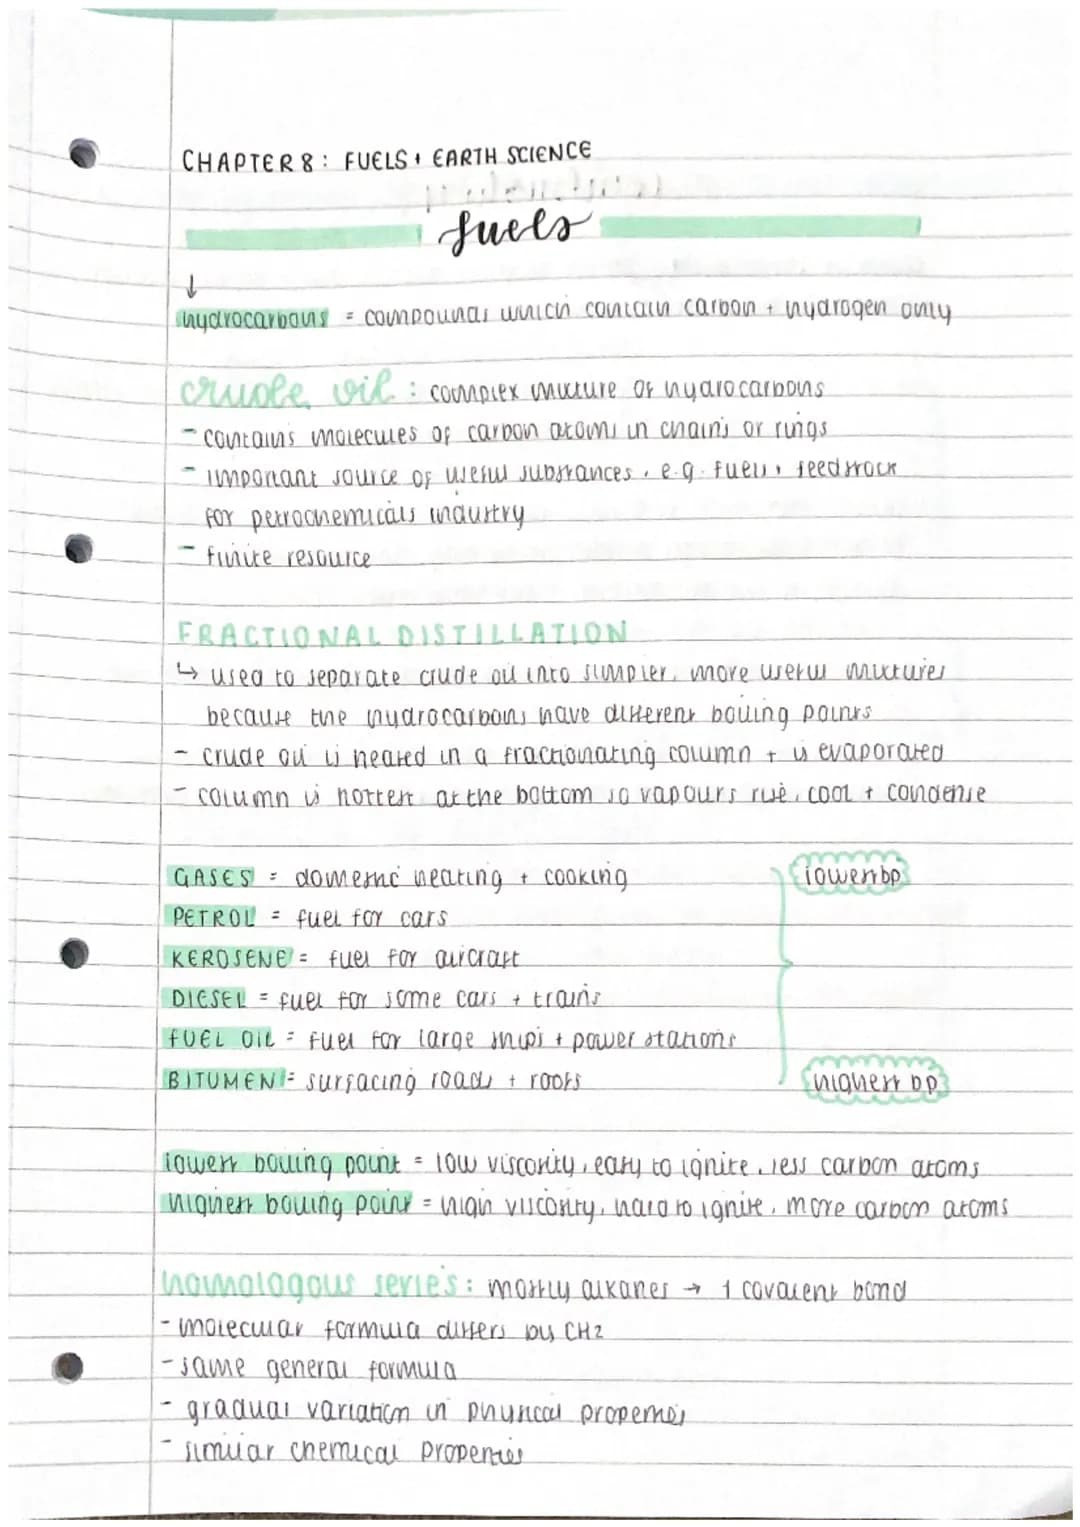 CHAPTER 8: FUELS + EARTH SCIENCE
fuels
↓
hydrocarbons = compounds which contain carbon + hydrogen only
crude oil : complex mixture of hydrocarbons
- contains molecules of carbon atoms in chains or rings
- important source of useful substances, e.g. fuels, feedstock
for petrochemicals industry
- finite resource
FRACTIONAL DISTILLATION
↳ used to separate crude oil into simpler, more useful mixtures
because the hydrocarbons have different boiling points
- crude oil is heated in a fractionating column + is evaporated
- column is hottest at the bottom so vapours rise, cool + condense
GASES = domestic heating + cooking
lowest bp
PETROL = fuel for cars
KEROSENE = fuel for aircraft
DIESEL = fuel for some cars + trains
FUEL OIL = fuel for large ships + power stations
BITUMEN = surfacing roads + roofs
highest bp
lowest boiling point = low viscosity, easy to ignite, less carbon atoms
highest boiling point = high viscosity, hard to ignite, more carbon atoms
homologous series: mostly alkanes → 1 covalent bond
- molecular formula differs by CH2
- same general formula
- gradual variation in physical properties
- similar chemical properties